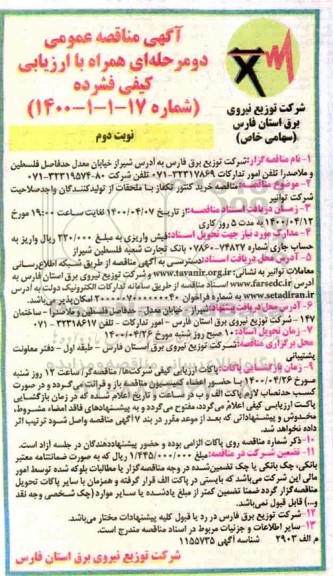 آگهی مناقصه عمومی
دومرحله‌ای همراه با ارزیابی
کیفی فشرده
(شماره ۱۷-۱-۱-۱۴۰۰)
نوبت دوم
شرکت توزیع نیروی
برق استان فارس
(سهامی خاص)
۱- نام مناقصه گزار: شرکت توزیع برق فارس به آدرس شیراز خیابان معدل حدفاصل فلسطین
و ملاصدرا تلفن امور تدارکات ۳۲۳۱۷۸۶۹-۰۷۱ تلفن شرکت ۸۰-۳۲۳۱۹۵۷۴-۰۷۱
۲- موضوع مناقصه: مناقصه خرید کنتور تکفاز با ملحقات از تولیدکنندگان واجدصلاحیت
شرکت توانیر
۳- زمان دریافت اسناد مناقصه: از تاریخ ۱۴۰۰/۰۴/۰۷ لغایت ساعت ۱۹:۰۰ مورخ
۱۴۰۰/۰۴/۱۲ به مدت ۵ روز کاری
۴- مدارک مورد نیاز جهت تحویل اسناد: فیش واریزی به مبلغ ۳۳۰/۰۰۰ ریال واریز به
حساب جاری شماره ۰۷۸۶۰۰۷۴۸۲۷ بانک تجارت شعبه فلسطین شیراز
۵- محل دریافت اسناد: دسترسی به آگهی مناقصه از طریق شبکه اطلاع‌رسانی
معاملات توانیر به نشانی: www.tavanir.org.ir و شرکت توزیع نیروی برق استان فارس به
آدرس www.farsedc.ir اسناد مناقصه از طریق سامانه تدارکات الکترونیک دولت به آدرس
www.setadiran.ir به شماره فراخوان امکان پذیر می‌باشد.
۶- آدرس محل دریافت اسناد: شیراز - خیابان معدل - حدفاصل فلسطین و ملاصدرا - ساختمان
۱۴۷ - شرکت توزیع نیروی برق استان فارس - امور تدارکات - تلفن ۳۲۳۱۸۶۱۷ - ۰۷۱
۷- زمان تحویل اسناد: ۱۰ صبح روز شنبه مورخ ۱۴۰۰/۰۴/۲۶
محل برگزاری مناقصه: شرکت توزیع نیروی برق استان فارس - طبقه اول - دفتر معاونت
پشتیبانی
۹- زمان بازگشایی پاکات: پاکات ارزیابی کیفی شرکت‌ها/ مناقصه‌گر/ ساعت ۱۲ روز شنبه
مورخ ۱۴۰۰/۰۴/۲۶ با حضور اعضاء کمیسیون مناقصه باز و قرائت می‌گردد و در صورت
کسب حدنصاب لازم پاکت الف و ب در ساعت و تاریخ اعلام شده که در زمان بازگشایی
پاکت ارزیابی کیفی اعلام می‌گردد، مفتوح می‌گردد و به پیشنهادهای فاقد امضاء مشروط،
مخدوش و پیشنهاداتی که بعد از موعد مقرر در بند ۷ آگهی مناقصه واصل شود ترتیب اثر
داده نخواهد شد.
۱۰- ذکر شماره مناقصه روی پاکات الزامی بوده و حضور پیشنهاددهندگان در جلسه آزاد است.
۱۱- تضمین شرکت در مناقصه: مبلغ ۱/۴۴۵/۰۰۰/۰۰۰ ریال که به صورت ضمانتنامه معتبر
بانکی، چک بانکی یا چک تضمین‌شده در وجه مناقصه‌گزار یا مطالبات بلوکه شده توسط امور
مالی این شرکت می‌باشد که بایستی در پاکت الف قرار گرفته و همزمان با سایر پاکات تحویل
مناقصه‌گزار گردد ضمنا تضمین کمتر از مبلغ یادشده یا سایر موارد (چک شخصی وجه نقد
و...) قابل قبول نمی‌باشد.
۱۲- شرکت توزیع برق فارس در رد یا قبول کلیه پیشنهادات مختار می‌باشد.
۱۳- سایر اطلاعات و جزئیات مربوط در اسناد مناقصه مندرج است.
م الف ۲۹۰۳ شناسه آگهی ۱۱۵۵۷۳۵
شرکت توزیع نیروی برق استان فارس